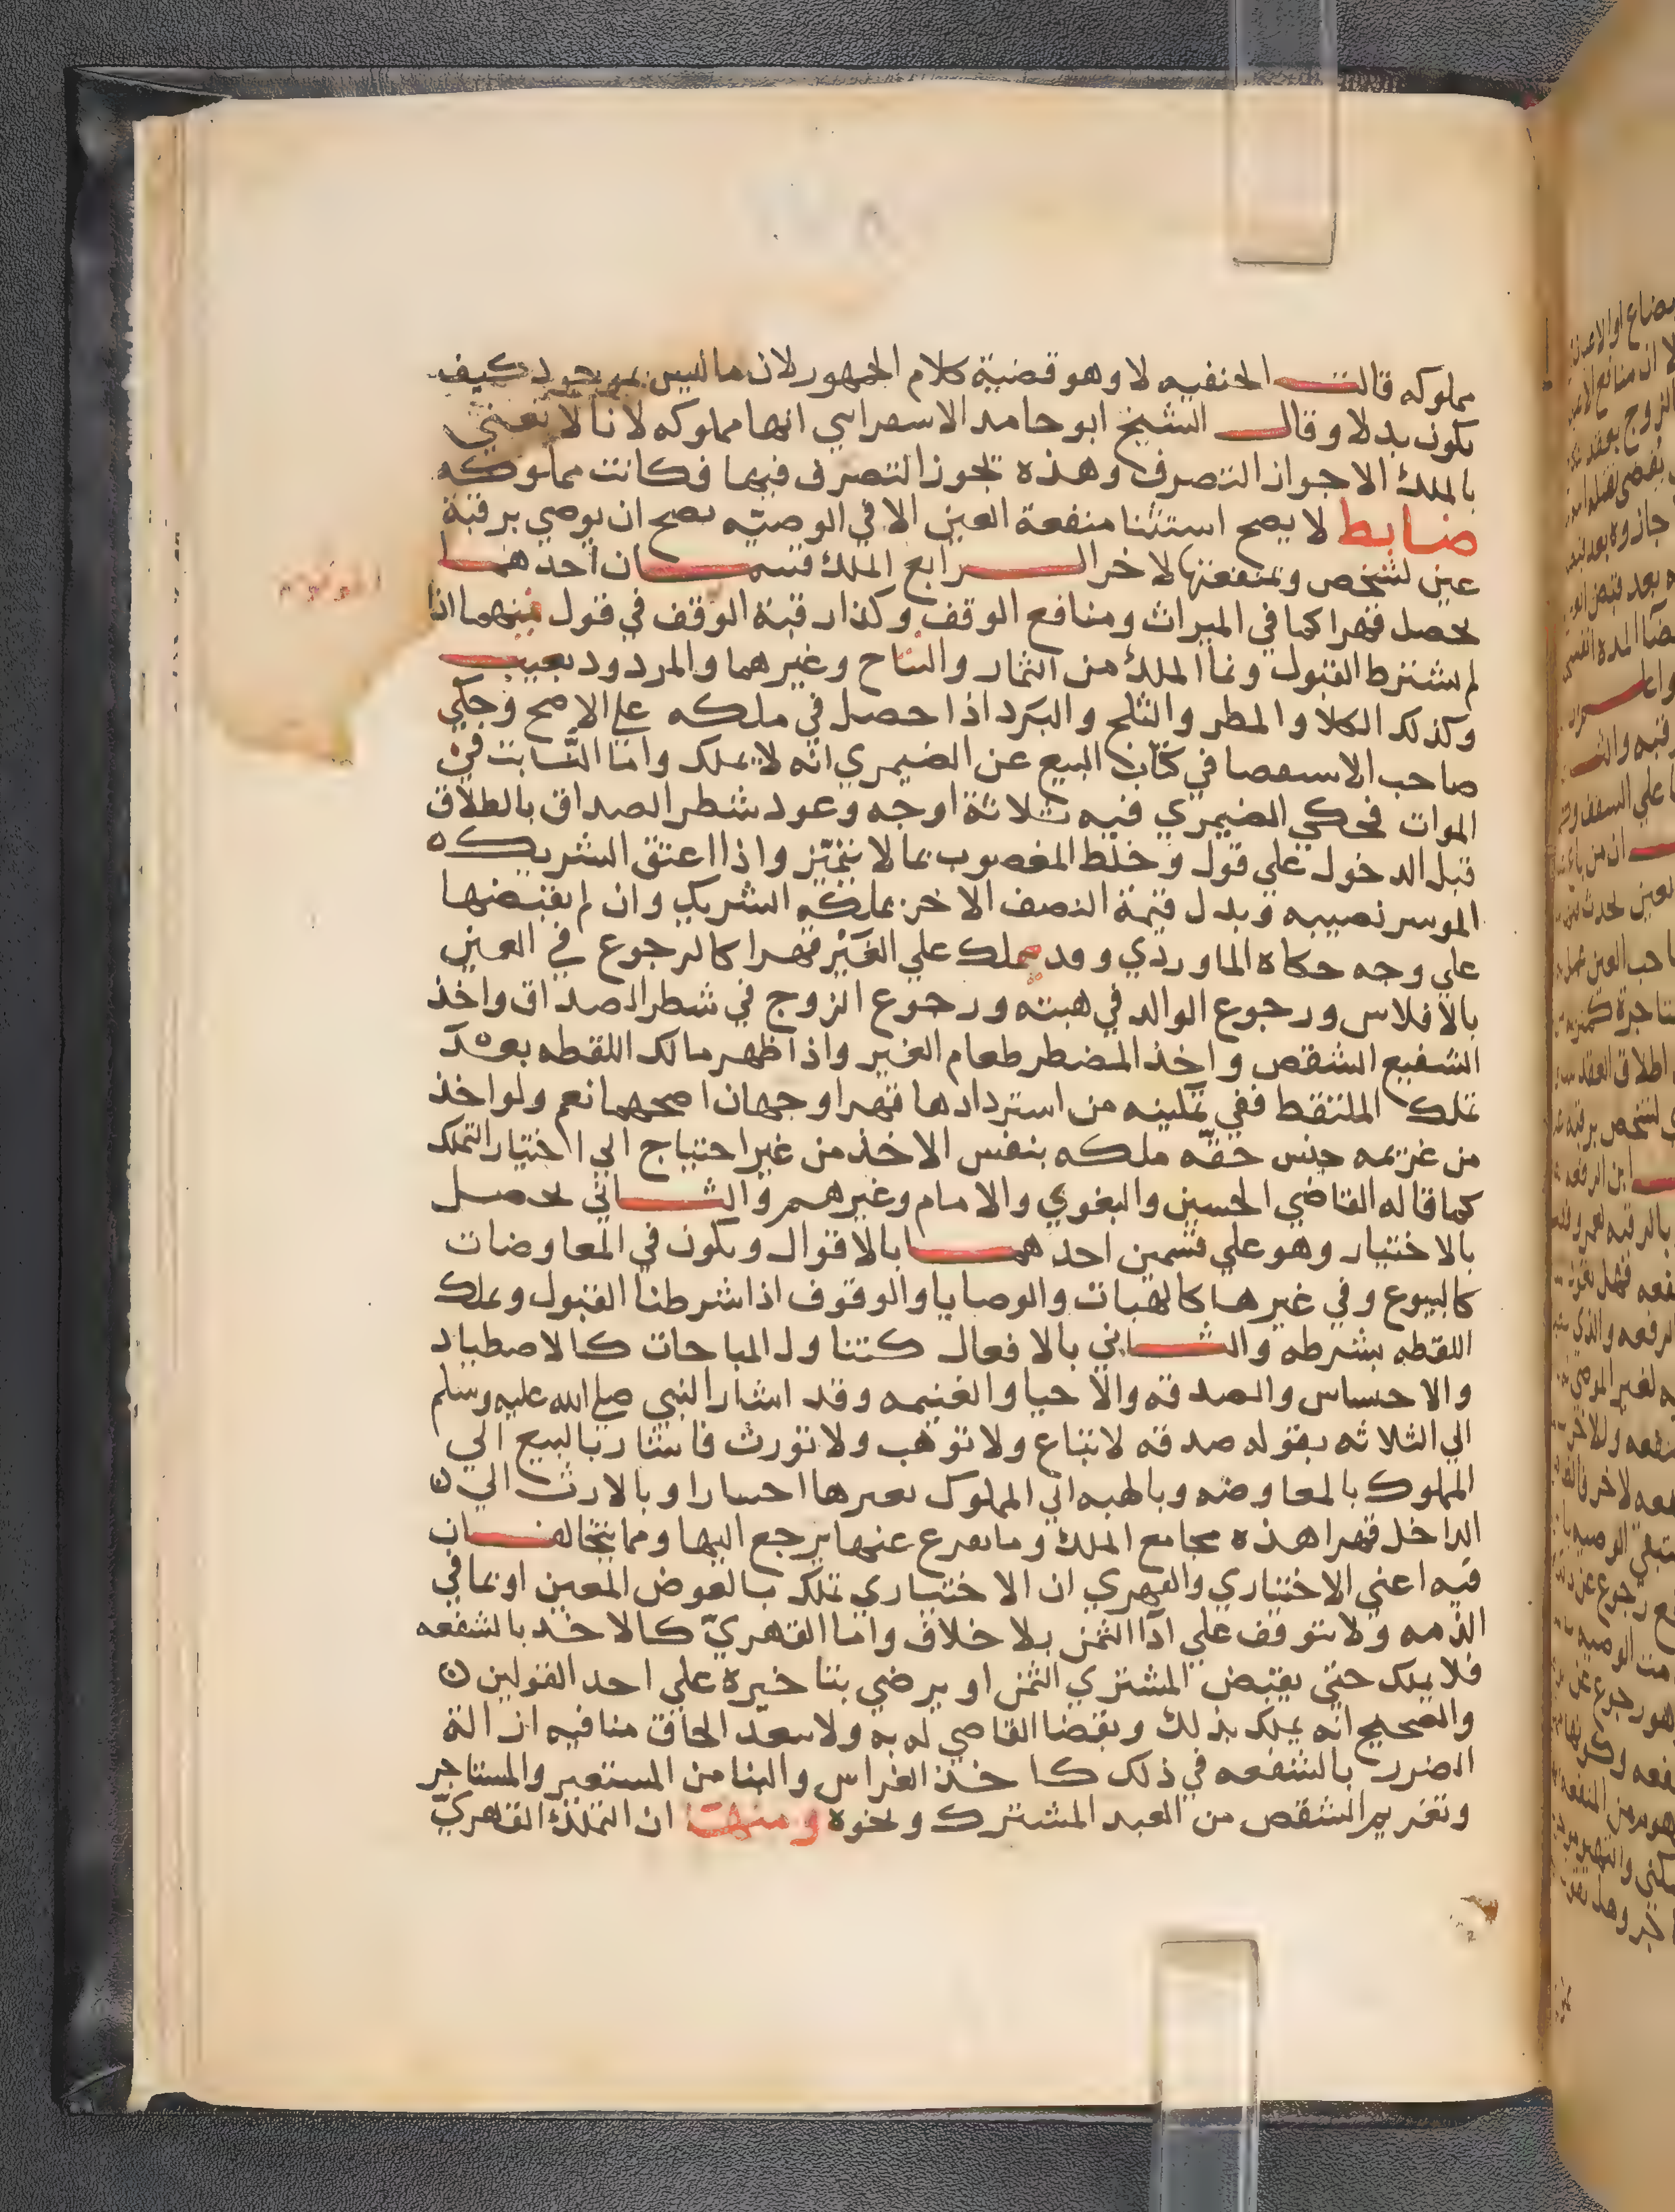 مملوكه قالت الحنفيه لا وهو قضية كلام الجمهور لان ما ليس بموجود كيف
يكون بدلا وقال الشيخ ابو حامد الاسفرايني انها مملوكه لانا لا نعني
بالملك الا جواز التصرف وهذه يجوز التصرف فيها فكانت مملوكه
ضابط لا يصح استثنا منفعة العين الا في الوصيه يصح ان يوصي برقبة
عين لشخص وبمنفعتها لاخر الرابع الملك قسمان احدهما
يحصل قهرا كما في الميراث ومنافع الوقف وكذا رقبة الوقف في قول منهما اذا
لم نشترط القبول ونما الملك من الثمار والنتاج وغيرهما والمردود بعيب
وكذلك الكلا والمطر والثلج والبرد اذا حصل في ملكه علي الاصح وحكي
صاحب الاستقصا في كتاب البيع عن الصيمري انه لا يملك واما النابت في
الموات فحكي الصيمري فيه ثلاثة اوجه وعود شطر الصداق بالطلاق
قبل الدخول علي قول وخلط المغصوب بما لا يتميز واذا اعتق الشريك
الموسر نصيبه وبدل قيمة النصف الاخر يملكه الشريك وان لم يقبضها
علي وجه حكاه الماوردي وقد يملك علي الغير قهرا كالرجوع في العين
بالافلاس ورجوع الوالد في هبته ورجوع الزوج في شطر الصداق واخذ
الشفيع الشقص واخذ المضطر طعام الغير واذا ظهر مالك اللقطه بعد
تملك الملتقط ففي تمكينه من استردادها قهرا وجهان اصحهما نعم ولو اخذ
من غريمه جنس حقه ملكه بنفس الاخذ من غير احتياج الي اختيار التملك
كما قاله القاضي الحسين والبغوي والامام وغيرهم والثاني يحصل
بالاختيار وهو علي قسمين احدهما بالاقوال ويكون في المعاوضات
كالبيوع وفي غيرها كالهبات والوصايا والوقوف اذا شرطنا القبول وتملك
اللقطه بشرطه والثاني بالافعال كتناول المباحات كالاصطياد
والاحساس والصدقه والاحيا والغنيمه وقد اشار النبي صلي الله عليه وسلم
الي الثلاثه بقوله صدقه لا تباع ولا توهب ولا تورث فاشار بالبيع الي
المملوك بالمعاوضه وبالهبه الي المملوك بغيرها اختيارا وبالارث الي
الداخل قهرا هذه مجامع الملك وما تفرع عنها يرجع اليها ومما يتخالفان
فيه اعني الاختياري والقهري ان الاختياري تملك بالعوض المعين او بما في
الذمه ولا يتوقف علي ادا الثمن بلا خلاف واما القهري كالاخد بالشفعه
فلا يملك حتي يقبض المشتري الثمن او يرضي بتاخيره علي احد القولين
والصحيح انه يملك بذلك وبقضا القاضي له به ولا يبعد الحاق منافيه ازالة
الضرر بالشفعه في ذلك كاخذ الغراس والبنا من المستعير والمستاجر
وتغريم الشقص من العبد المشترك ونحوه ومنها ان التملك القهري